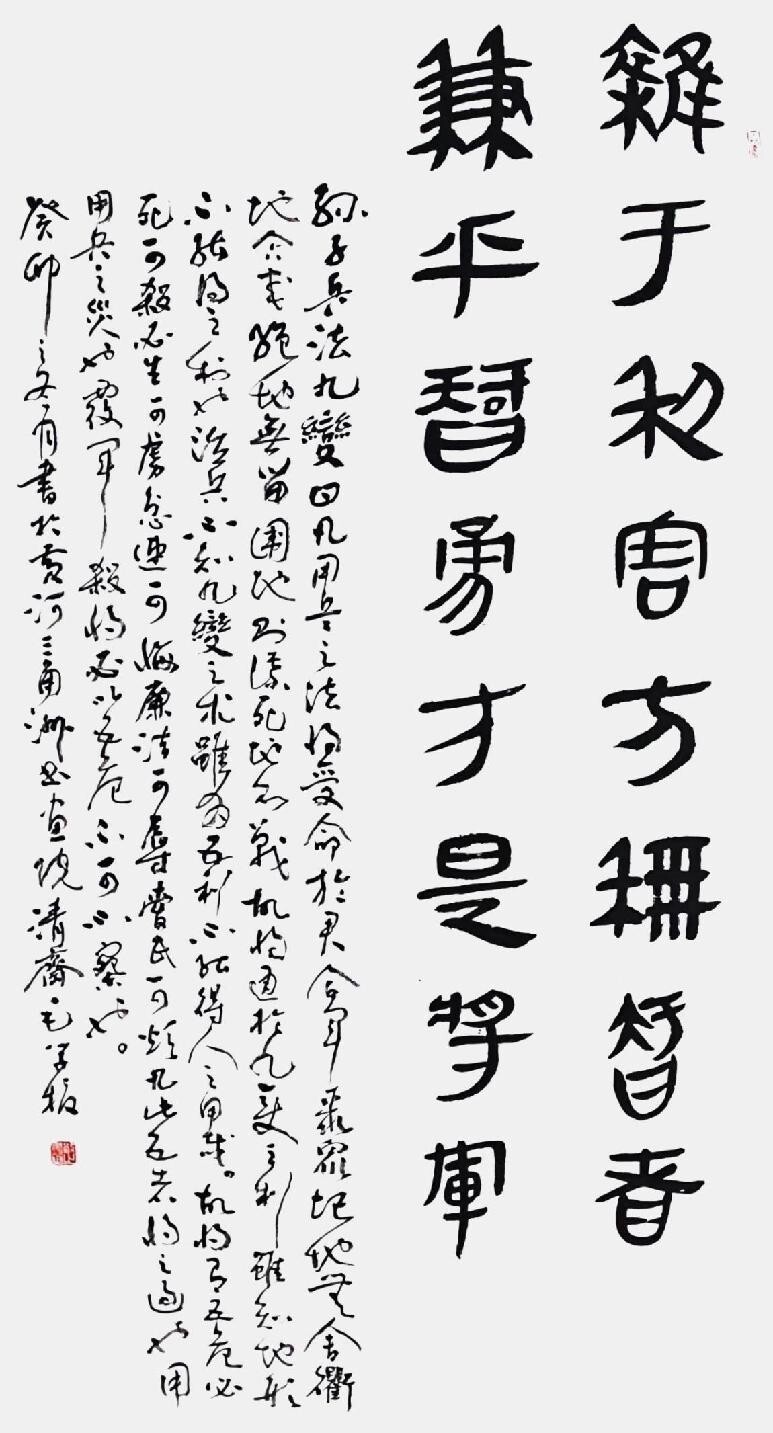 雜于利害方稱智者
兼乎智勇才是將軍
孫子兵法九變曰凡用兵之法將受命於君合軍聚眾圮地無舍衢
地合交絕地無留圍地則謀死地則戰故將通於九變之利雖知地形
不能得之利也治兵不知九變之術雖為五利不能得人之用哉。故將有五危必
死可殺必生可虜忿速可侮廉潔可辱愛民可煩凡此五者將之過也用
用兵之災也覆軍殺將必以五危不可不察也。
癸卯之冬月書於黃河三角洲書畫院清齋毛學